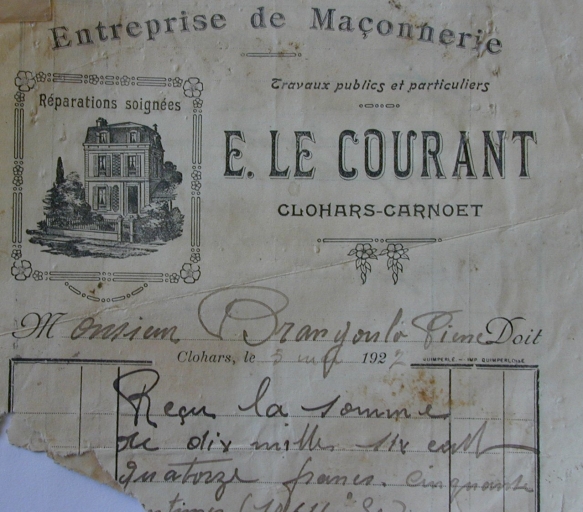 Entreprise de Maçonnerie
Réparations soignées
Travaux publics et particuliers
E. LE COURANT
CLOHARS-CARNOET
Monsieur Doit
Clohars, le 5 mai 1922
QUIMPERLÉ — IMP. QUIMPERLOISE
Reçu la somme
de dix mille six cent
quatorze francs. cinquante